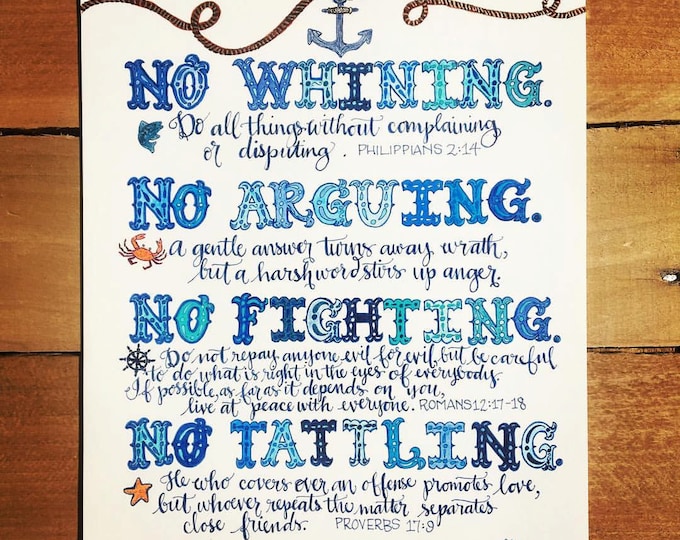 NO WHINING.
Do all things without complaining
or disputing. PHILIPPIANS 2:14
NO ARGUING.
A gentle answer turns away wrath,
but a harsh word stirs up anger.
NO FIGHTING.
Do not repay anyone evil for evil, but be careful
to do what is right in the eyes of everybody.
If possible, as far as it depends on you,
live at peace with everyone. ROMANS 12:17-18
NO TATTLING.
He who covers over an offense promotes love,
but whoever repeats the matter separates
close friends. PROVERBS 17:9